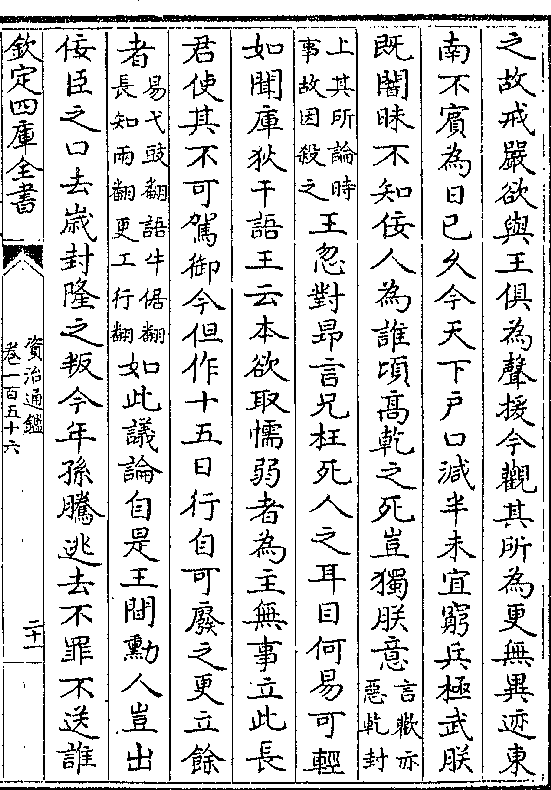 之故戒嚴欲與王俱為聲援今觀其所為更無異迹東
南不賓為日已久今天下戸口減半未宜窮兵極武朕
既闇昧不知佞人為誰頃髙乾之死豈獨朕意言歡亦惡乾封
上其所論時事故因殺之王忽對昻言兄枉死人之耳目何易可輕
如聞庫狄干語王云本欲取懦弱者為主無事立此長
君使其不可駕御今但作十五日行自可廢之更立餘
者易弋豉翻語牛倨翻長知兩翻更工行翻如此議論自是王間勳人豈出
佞臣之口去歳封隆之叛今年孫騰逃去不罪不送誰
欽定四庫全書
資治通鑑
卷一百五十六
二十一